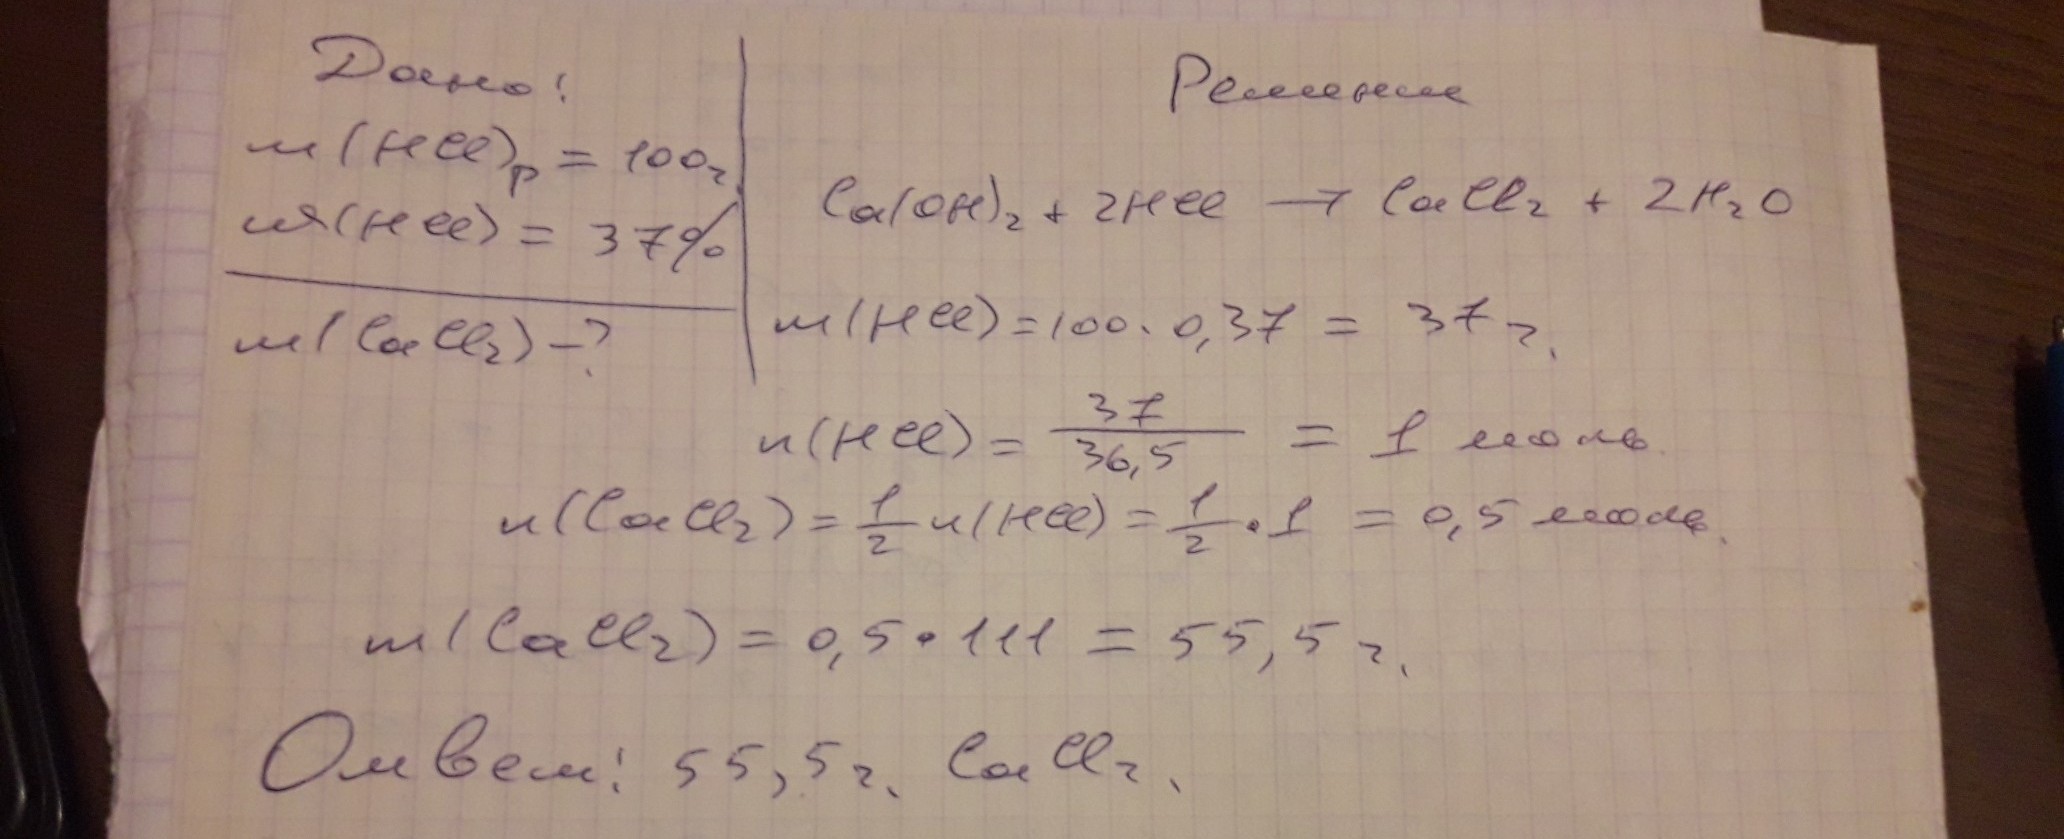 Дано:
m(HCl)р = 100г.
мя(HCl) = 37%
m(CaCl₂) - ?
Решение
Ca(OH)₂ + 2HCl → CaCl₂ + 2H₂O
m(HCl) = 100 · 0,37 = 37 г.
n(HCl) = 37/36,5 = 1 моль.
n(CaCl₂) = 1/2 n(HCl) = 1/2 · 1 = 0,5 моль.
m(CaCl₂) = 0,5 · 111 = 55,5 г.
Ответ: 55,5 г. CaCl₂.